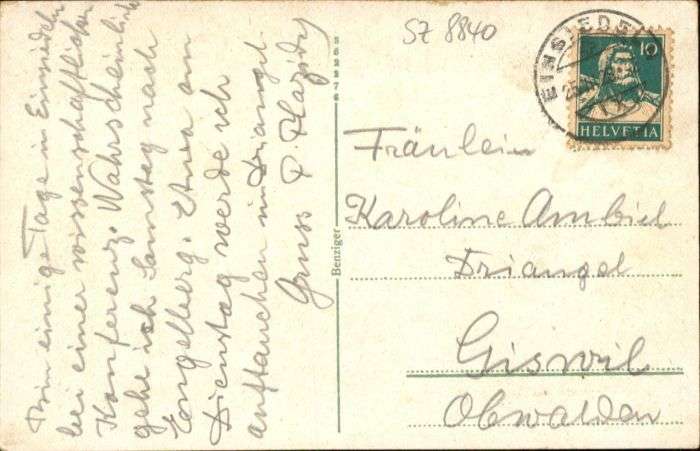 Bin einige Tage in Einsiedeln
bei einer wissenschaftlichen
Konferenz. Wahrscheinlich
gehe ich Samstag nach
Engelberg. Etwa am
Dienstag werde ich
auftauchen im Driangel.
Gruss P. Plazidus
362276
Benziger
SZ 8840
EINSIEDELN
10
HELVETIA
Fräulein
Karoline Ambiel
Driangel
Giswil
Obwalden